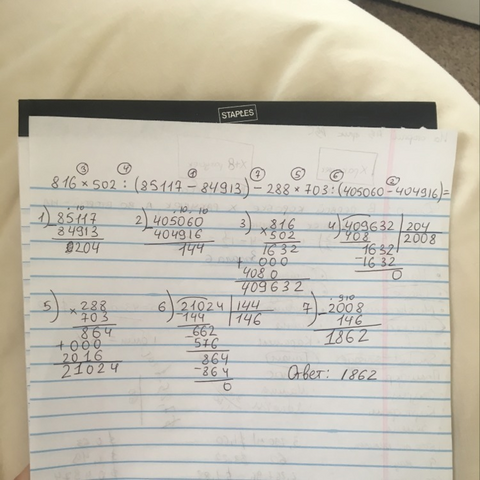 STAPLES
③ ④ ① ⑦ ⑤ ⑥ ②
816 × 502 : (85117 − 84913) − 288 × 703 : (405060 − 404916) =
1) 85117
− 84913
0204
2) 405060
− 404916
144
3) 816
× 502
1632
+ 000
4080
409632
4) 409632 | 204
408 | 2008
1632
− 1632
0
5) 288
× 703
864
+ 000
2016
21024
6) 21024 | 144
− 144 | 146
662
576
864
− 864
0
7) 2008
− 146
1862
Ответ: 1862